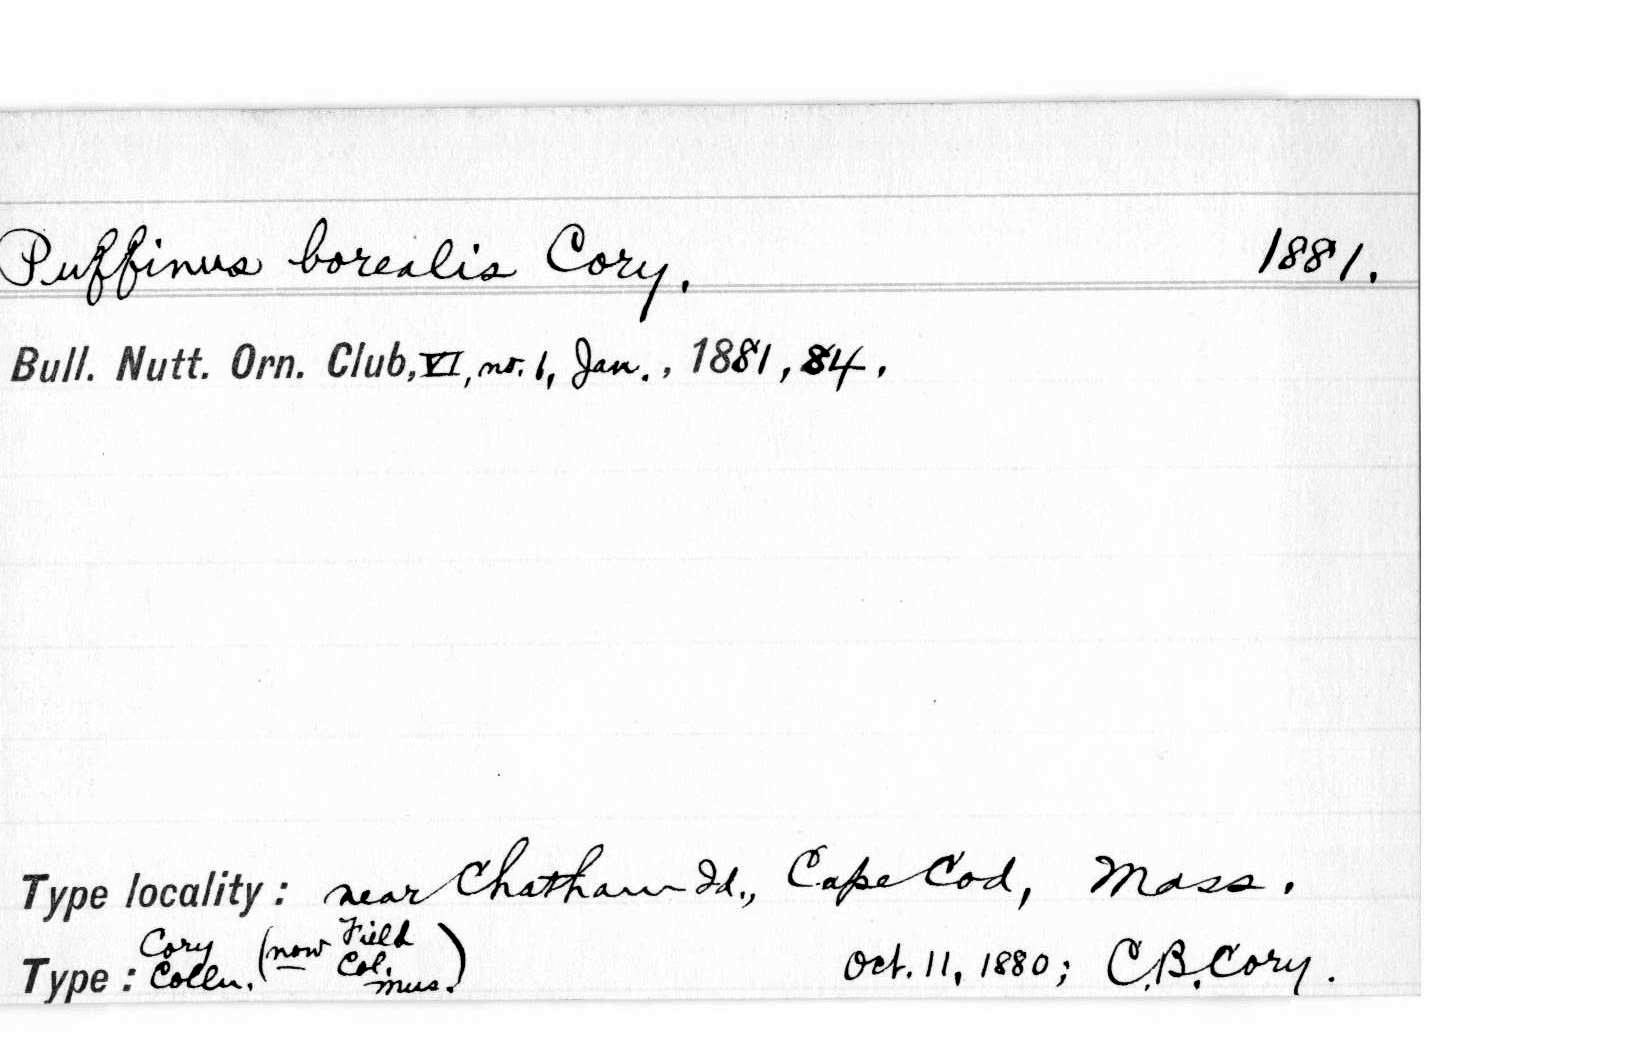 Puffinus borealis Cory. 1881.
Bull. Nutt. Orn. Club, VI, no. 1, Jan., 1881, 84.
Type locality: near Chatham Id., Cape Cod, Mass.
Type: Cory Colln. (now Field Col. Mus.) Oct. 11, 1880; C.B. Cory.